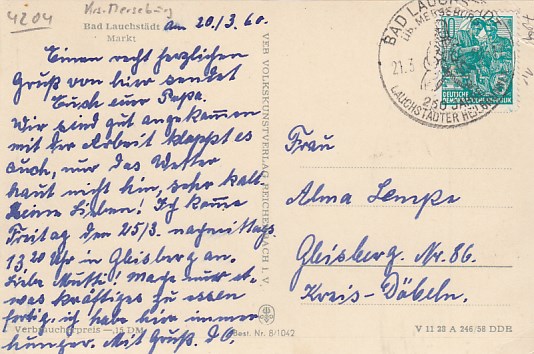 4204
Krs. Merseburg
Bad Lauchstädt am 20/3. 60.
Markt
Einen recht herzlichen
Gruß von hier sendet
Euch euer Papa.
Wir sind gut angekommen
mit der Arbeit klappt es
auch, nur das Wetter
haut nicht hin, sehr kalt.
Meine Lieben! Ich komme
Freitag den 25/3. nachmittags
13,20 Uhr in Gleisberg an.
Liebe Mutti! Mache nur et-
was kräftiges zu essen
fertig, ich habe hier immer
hunger. Mit Gruß. d. O.
Verbraucherpreis —,15 DM
Best. Nr. 8/1042
VEB VOLKSKUNSTVERLAG REICHENBACH I. V.
BAD LAUCHSTÄDT
(Kr. MERSEBURG)
21.3
250 JAHRE
LAUCHSTÄDTER HEILBRUNNEN
10
DEUTSCHE
DEMOKRATISCHE REPUBLIK
Frau
Alma Lempe
Gleisberg. Nr. 86.
Kreis-Döbeln.
V 11 28 A 246/58 DDR